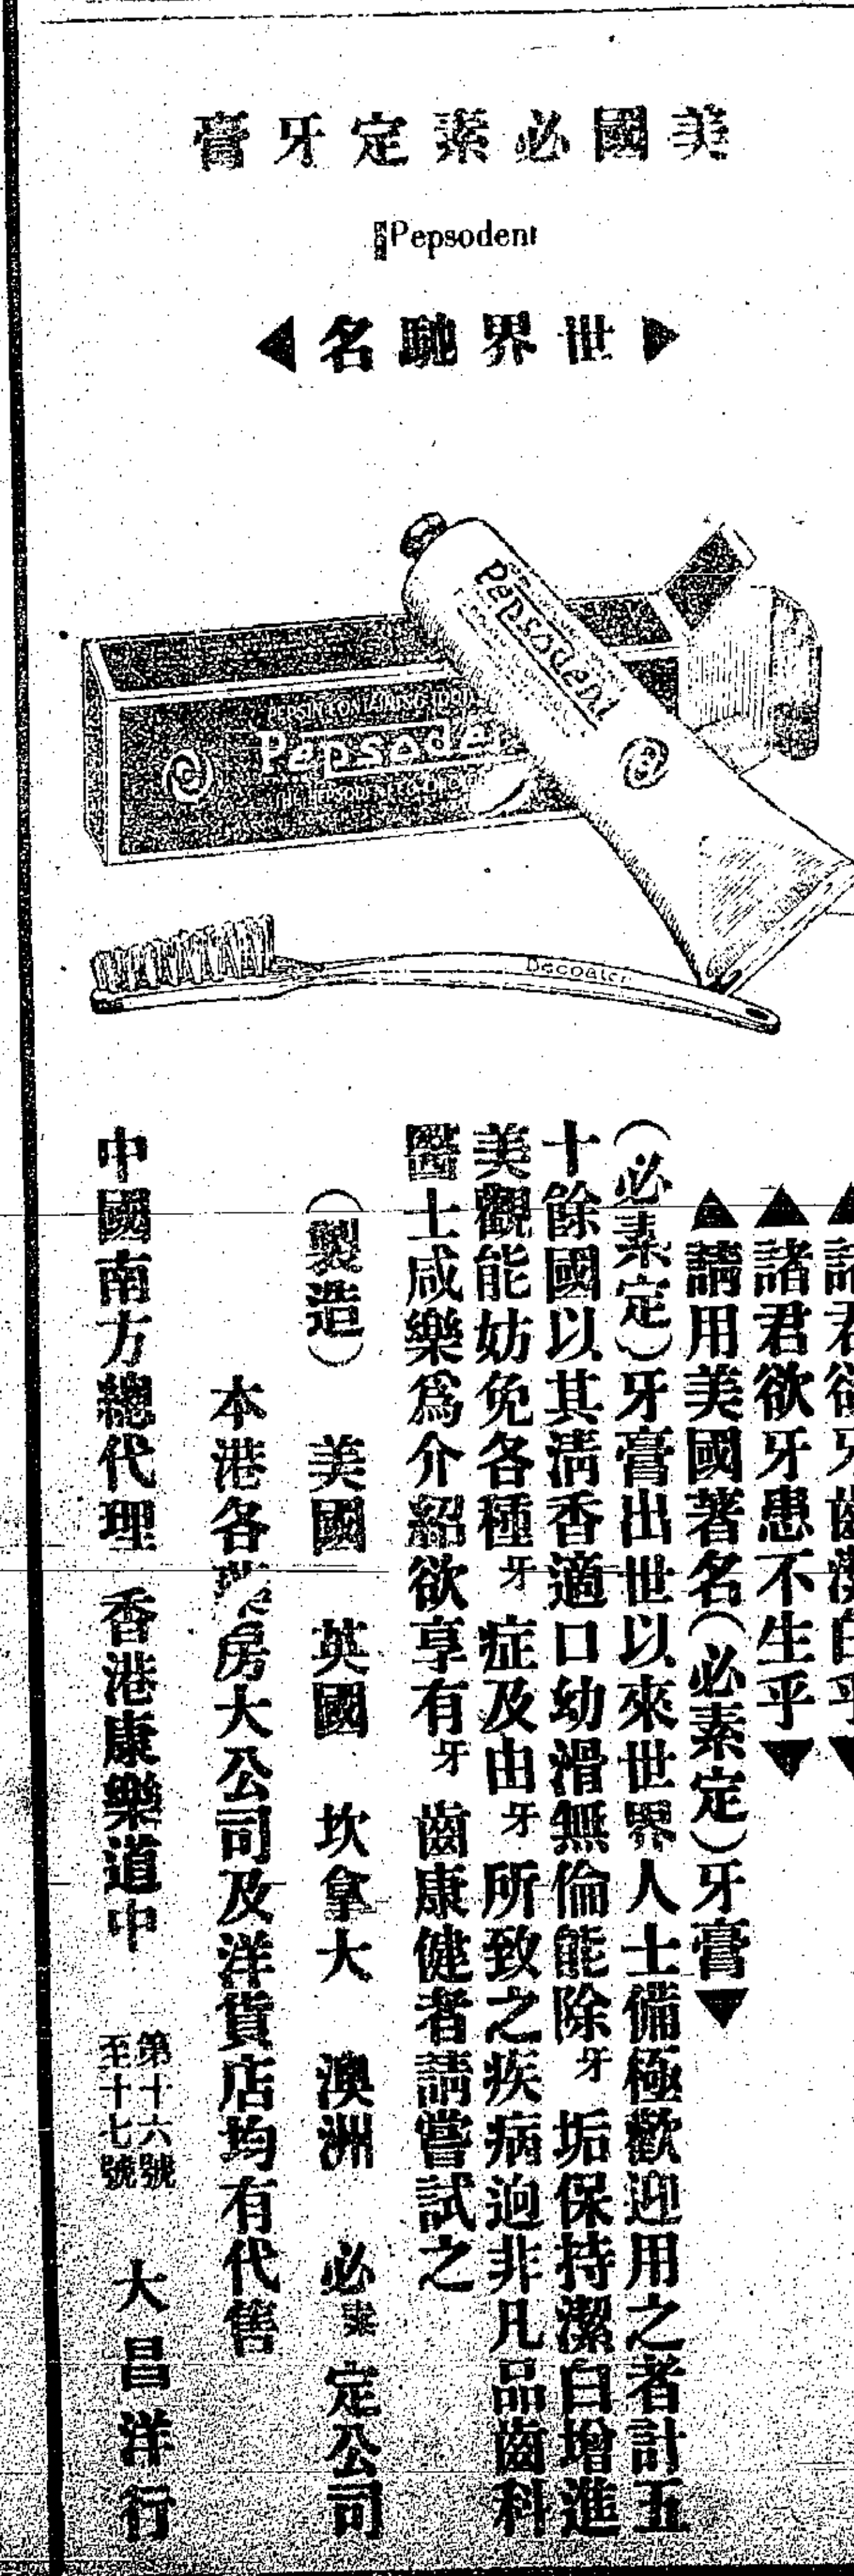 美國必素定牙膏
Pepsodent
▶世界馳名◀
Pepsodent
Pepsode
諸君欲牙齒潔白乎▼
▲諸君欲牙患不生乎▼
▲請用美國著名(必素定)牙膏▼
(必素定)牙膏出世以來世界人士備極歡迎用之者計五
十餘國以其清香適口幼滑無倫能除牙垢保持潔白增進
美觀能妨免各種牙症及由牙所致之疾病逈非凡品齒科
醫士咸樂爲介紹欲享有牙齒康健者請嘗試之
(製造) 美國 英國 坎拿大 澳洲 必素定公司
本港各藥房大公司及洋貨店均有代售
中國南方總代理 香港康樂道中 第十六號至十七號 大昌洋行